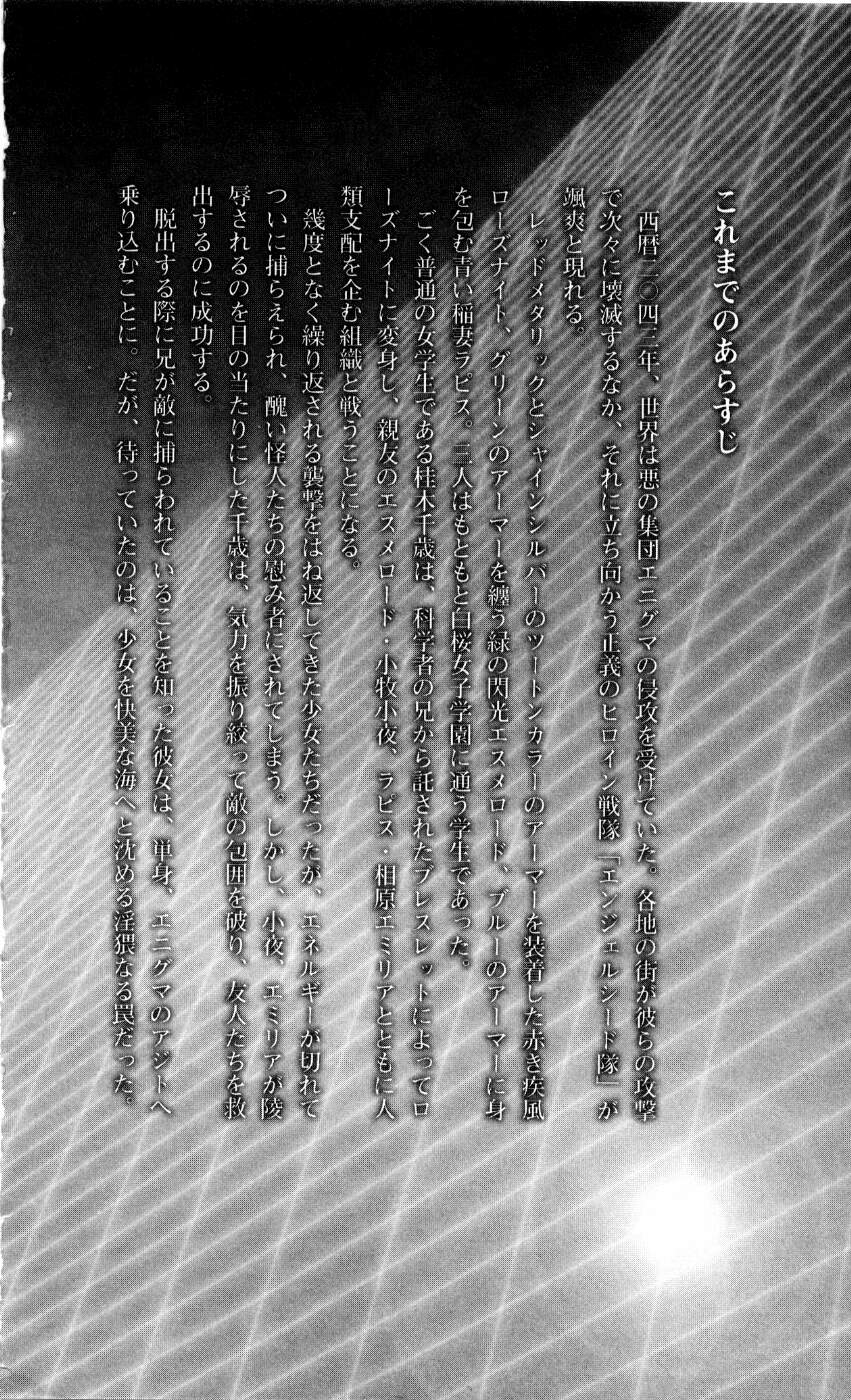 これまでのあらすじ
西暦二〇四三年、世界は悪の集団エニグマの侵攻を受けていた。各地の街が彼らの攻撃
で次々に壊滅するなか、それに立ち向かう正義のヒロイン戦隊「エンジェルシード隊」が
颯爽と現れる。
レッドメタリックとシャインシルバーのツートンカラーのアーマーを装着した赤き疾風
ローズナイト、グリーンのアーマーを纏う緑の閃光エスメロード、ブルーのアーマーに身
を包む青い稲妻ラピス。三人はもともと白桜女子学園に通う学生であった。
ごく普通の女学生である桂木千歳は、科学者の兄から託されたブレスレットによってロ
ーズナイトに変身し、親友のエスメロード・小牧小夜、ラピス・相原エミリアとともに人
類支配を企む組織と戦うことになる。
幾度となく繰り返される襲撃をはね返してきた少女たちだったが、エネルギーが切れて
ついに捕らえられ、醜い怪人たちの慰み者にされてしまう。しかし、小夜、エミリアが陵
辱されるのを目の当たりにした千歳は、気力を振り絞って敵の包囲を破り、友人たちを救
出するのに成功する。
脱出する際に兄が敵に捕らわれていることを知った彼女は、単身、エニグマのアジトへ
乗り込むことに。だが、待っていたのは、少女を快美な海へと沈める淫猥なる罠だった。